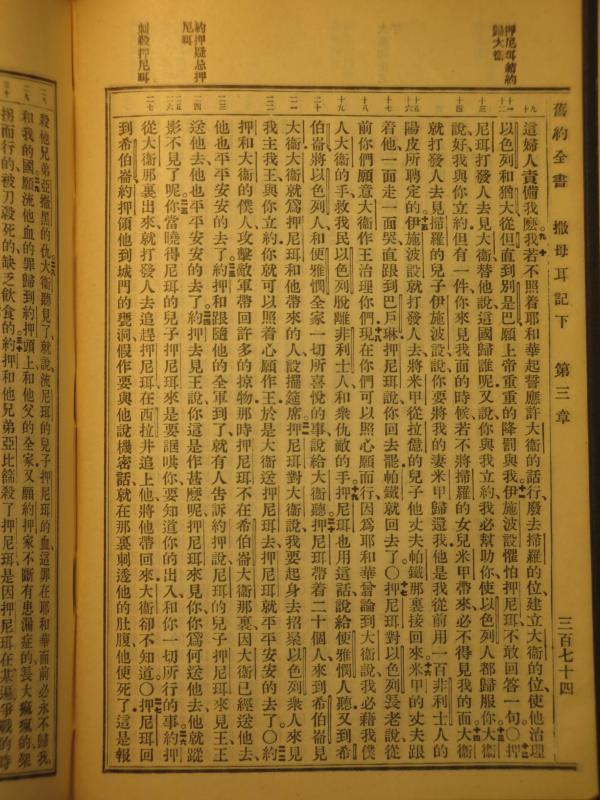 押尼珥續約
歸大衛
約押疑忌押
尼珥
刺殺押尼珥
舊約全書 撒母耳記下 第三章 三百七十四
這婦人責備我麼我若不照着耶和華起誓應許大衛的話行廢去掃羅的位建立大衛的位使他治理
以色列和猶大從但直到別是巴願上帝重重的降罰與我伊施波設懼怕押尼珥不敢回答一句〇押
尼珥打發人去見大衛替他說這國歸誰呢又說你與我立約我必幫助你使以色列人都歸服你大衛
說好我與你立約但有一件你來見我面的時候若不將掃羅的女兒米甲帶來必不得見我的面大衛
就打發人去見掃羅的兒子伊施波設說你要將我的妻米甲歸還我他是我從前用一百非利士人的
陽皮所聘定的伊施波設就打發人去將米甲從拉億的兒子他丈夫帕鐵那裏接回來米甲的丈夫跟
着他一面走一面哭直跟到巴戶琳押尼珥說你回去罷帕鐵就回去了〇押尼珥對以色列長老說從
前你們願意大衛作王治理你們現在你們可以照心願而行因爲耶和華曾論到大衛說我必藉我僕
人大衛的手救我民以色列脫離非利士人和衆仇敵的手押尼珥也用這話說給便雅憫人聽又到希
伯崙將以色列人和便雅憫全家一切所喜悅的事說給大衛聽押尼珥帶着二十個人來到希伯崙見
大衛大衛就爲押尼珥和他帶來的人設擺筵席押尼珥對大衛說我要起身去招聚以色列衆人來見
我主我王與你立約你就可以照着心願作王於是大衛送押尼珥去押尼珥就平平安安的去了〇約
押和大衛的僕人攻擊敵軍帶回許多的掠物那時押尼珥不在希伯崙大衛那裏因大衛已經送他去
他也平平安安的去了約押和跟隨他的全軍到了就有人告訴約押說尼珥的兒子押尼珥來見王王
送他去他也平平安安的去了約押去見王說你這是作甚麼呢押尼珥來見你你爲何送他去他就蹤
影不見了呢你當曉得尼珥的兒子押尼珥來是要誆哄你要知道你的出入和你一切所行的事約押
從大衛那裏出來就打發人去追趕押尼珥在西拉井追上他將他帶回來大衛卻不知道〇押尼珥回
到希伯崙約押領他到城門的甕洞假作要與他說機密話就在那裏刺透他的肚腹他便死了這是報
殺他兄弟亞撒黑的仇大衛聽見了就說流尼珥的兒子押尼珥的血這罪在耶和華面前必永不歸我
和我的國願流他血的罪歸到約押頭上和他父的全家又願約押家不斷有患漏症的長大痲瘋的架
拐而行的被刀殺死的缺乏飲食的約押和他兄弟亞比篩殺了押尼珥是因押尼珥在基遍爭戰的時